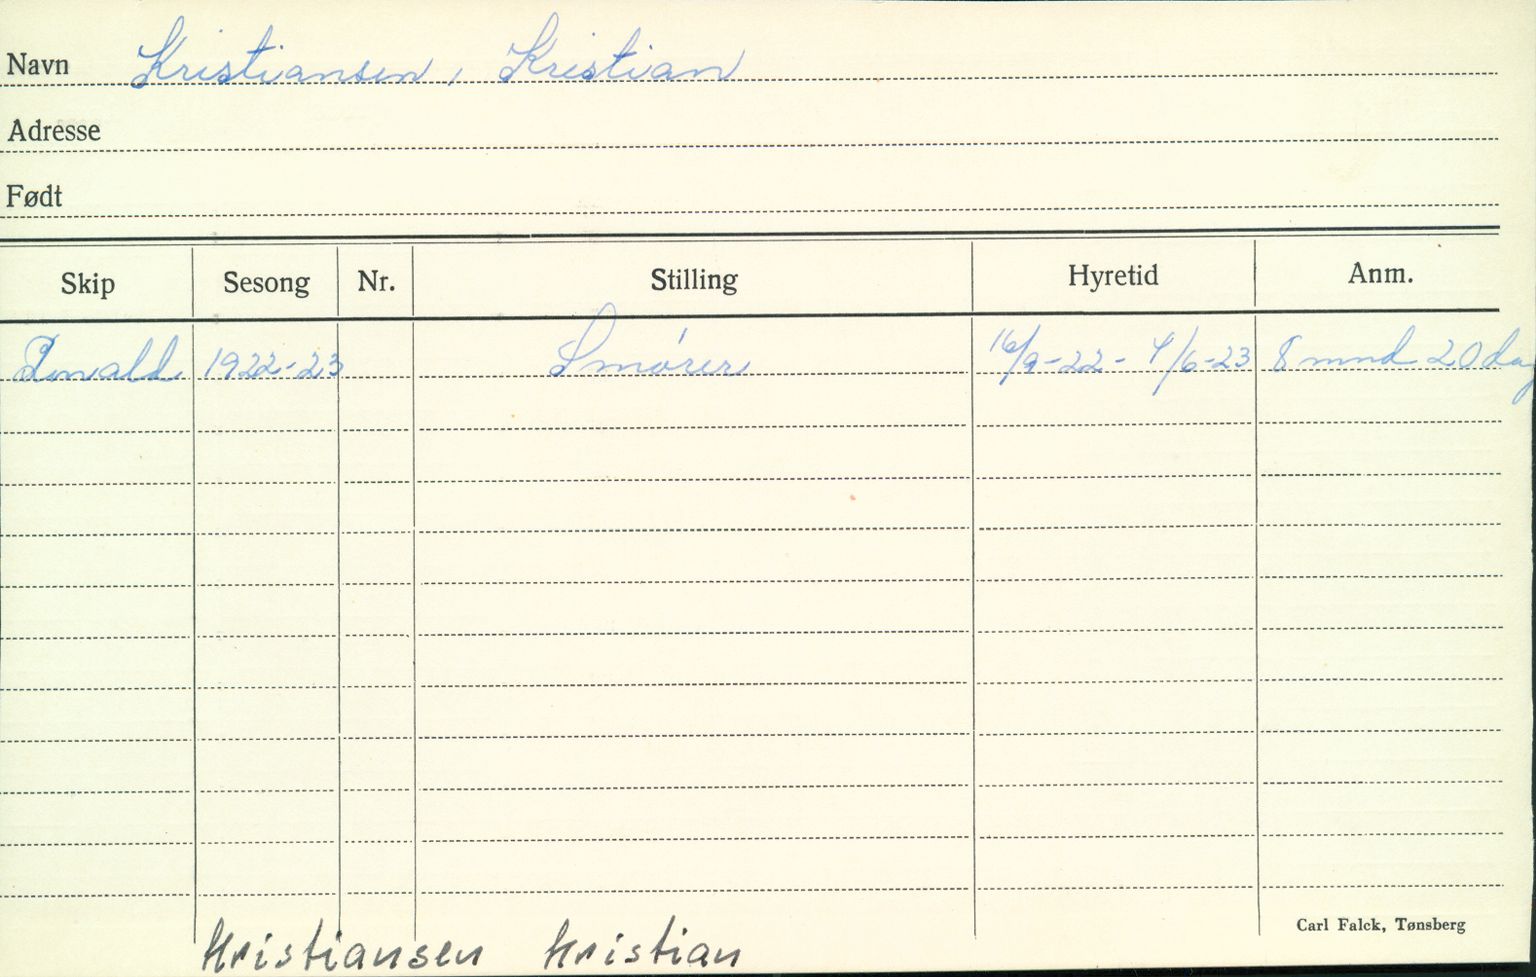 Navn Kristiansen, Kristian
Adresse
Født
Skip Sesong Nr. Stilling Hyretid Anm.
Ronald 1922-23 Smører 16/9-22 - 4/6-23 8 mnd 20 dag
Carl Falck, Tønsberg
Kristiansen Kristian